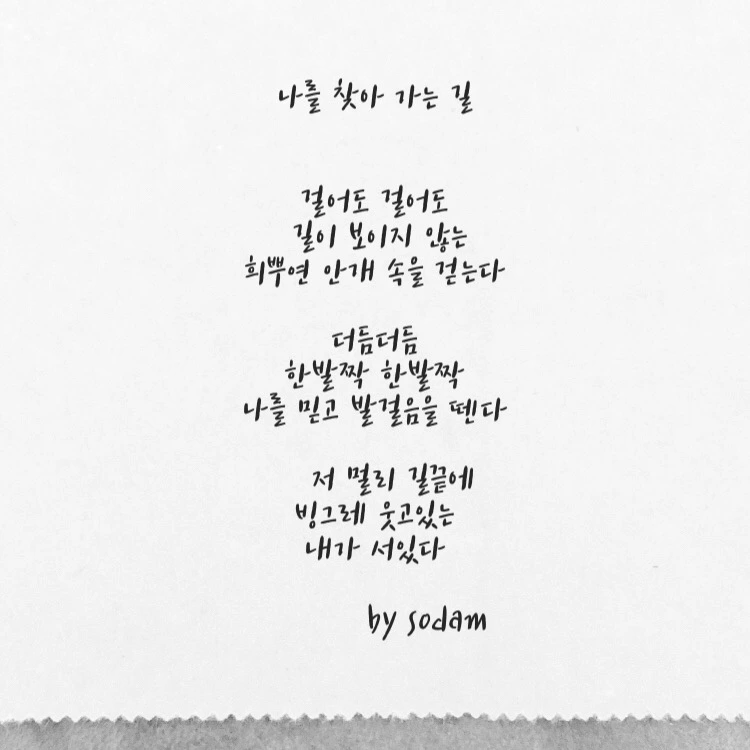 나를 찾아 가는 길
걸어도 걸어도
길이 보이지 않는
희뿌연 안개 속을 걷는다
더듬더듬
한발짝 한발짝
나를 믿고 발걸음을 뗀다
저 멀리 길끝에
빙그레 웃고있는
내가 서있다
by sodam